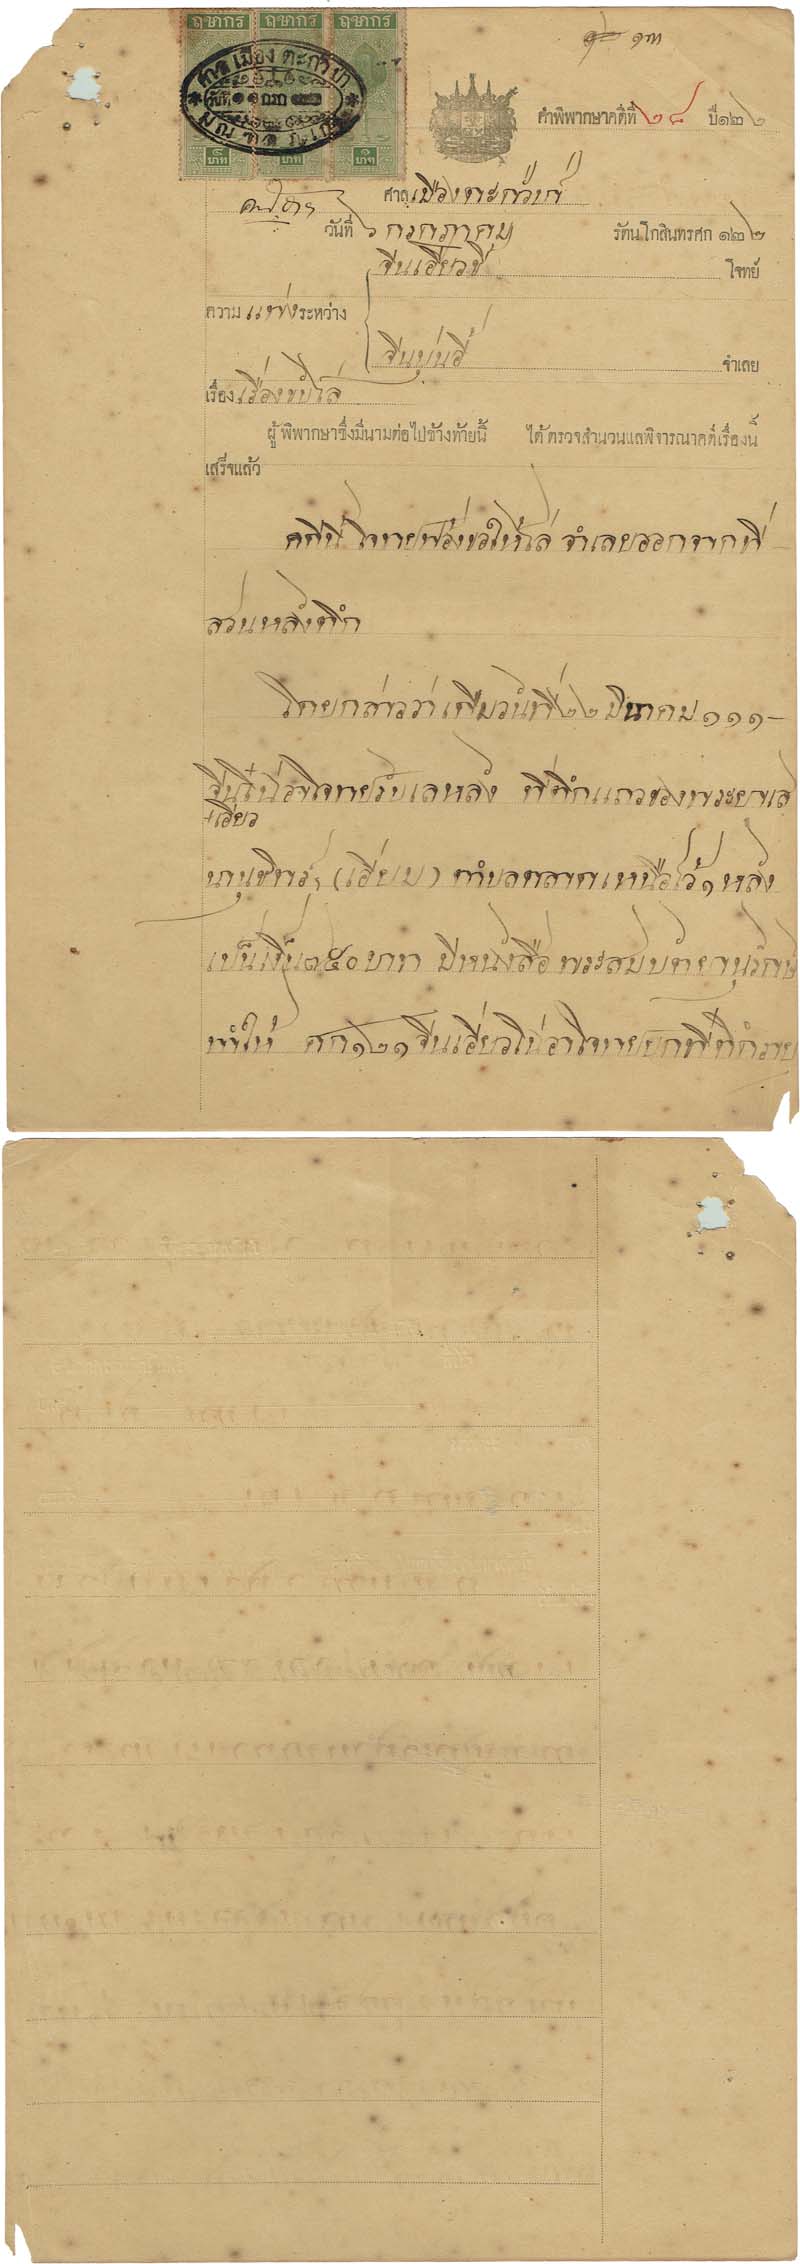 ฤชากร ฤชากร ฤชากร
ศาลเมืองตะกั่วป่า
วันที่
มณฑลภูเก็ต
๑ บาท ๑ บาท ๑ บาท
๑๓
คำพิพากษาคดีที่ ๒๘ ปี๑๒๒
ศาลเมืองตะกั่วป่า
วันที่ ๖ กรกฎาคม รัตนโกสินทรศก ๑๒๒
จีนเฮียวซี่ โจทย์
ความแพ่งระหว่าง
จีนบุ่นอี้ จำเลย
เรื่องขับไล่
ผู้พิพากษาซึ่งมีนามต่อไปข้างท้ายนี้ ได้ตรวจสำนวนแลพิจารณาคดีเรื่องนี้
เสร็จแล้ว
คดีนี้ โจทย์ฟ้องขอให้ไล่ จำเลยออกจากที่
สวนหลังตึก
โดยกล่าวว่าเดิมวันที่ ๒๒ มีนาคม ๑๑๑
โจทย์รับ ที่ตึกแถวของพระยาเส
เฮียว
นานุชิตร์ (เอี่ยม) ตำบลตลาดเหนือไว้ ๑ หลัง
เป็นเงิน ๓๕๐ บาท มีหนังสือ
ทำให้ ศก๑๒๑ จีนเฮียว โจทย์ยกที่ตึกราย